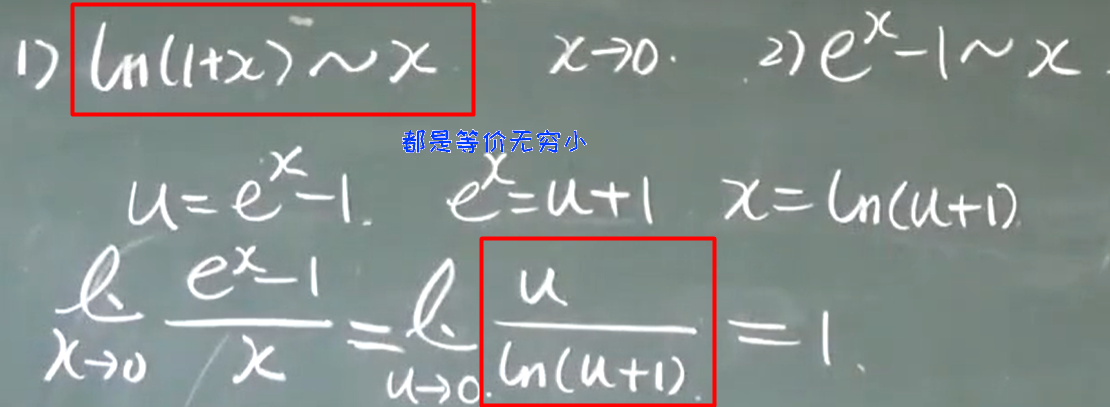 1) ln(1+x) ~ x x→0. 2) e^x-1 ~ x.
都是等价无穷小
u=e^x-1. e^x=u+1 x=ln(u+1).
l. x→0 (e^x-1)/x = l. u→0. u/ln(u+1). = 1.